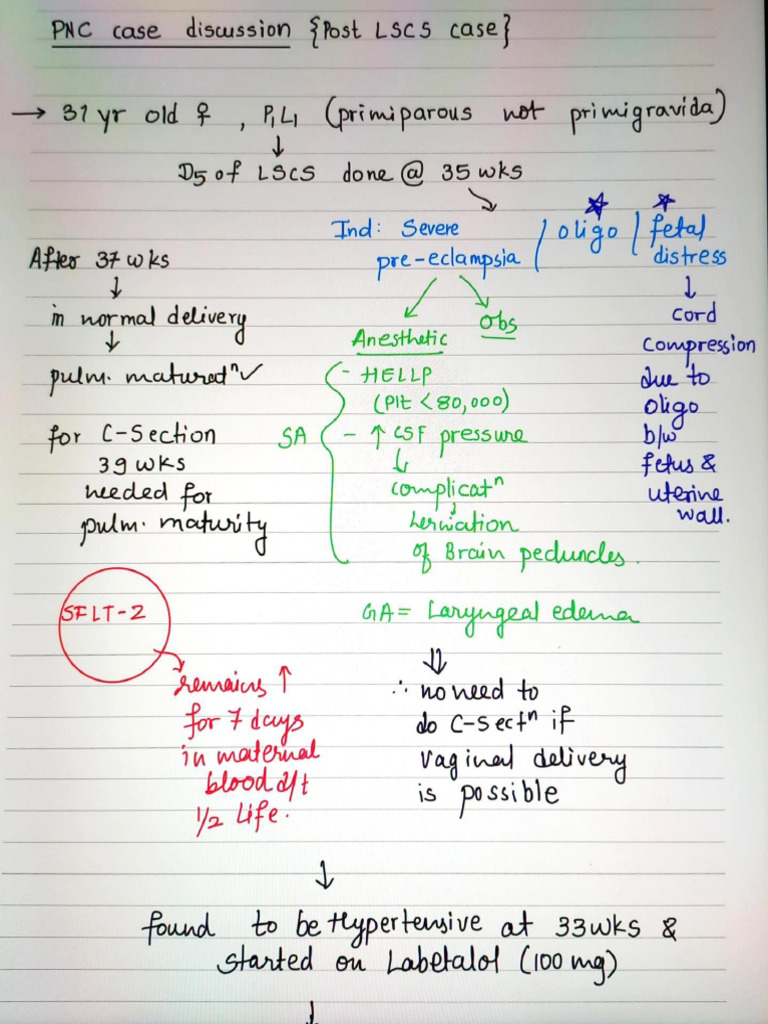 PNC case discussion {Post LSCS case}
→ 31 yr old ♀, P₁L₁ (primiparous not primigravida)
↓
D5 of LSCS done @ 35 wks
Ind: Severe pre-eclampsia / oligo / fetal distress
After 37 wks
↓
in normal delivery
↓
pulm. maturedⁿ✓
for C-Section
39 wks
needed for
pulm. maturity
Anesthetic
Obs
SA
- HELLP
(Plt <80,000)
- ↑ CSF pressure
↓
complicatⁿ
↓
herniation
of Brain peduncles.
↓
cord
compression
due to
oligo
b/w
fetus &
uterine
wall.
SFLT-2
remains ↑
for 7 days
in maternal
blood d/t
1/2 life.
GA = Laryngeal edema
⇓
∴ no need to
do C-Sectⁿ if
vaginal delivery
is possible
↓
found to be Hypertensive at 33wks &
started on Labetalol (100 mg)
↓